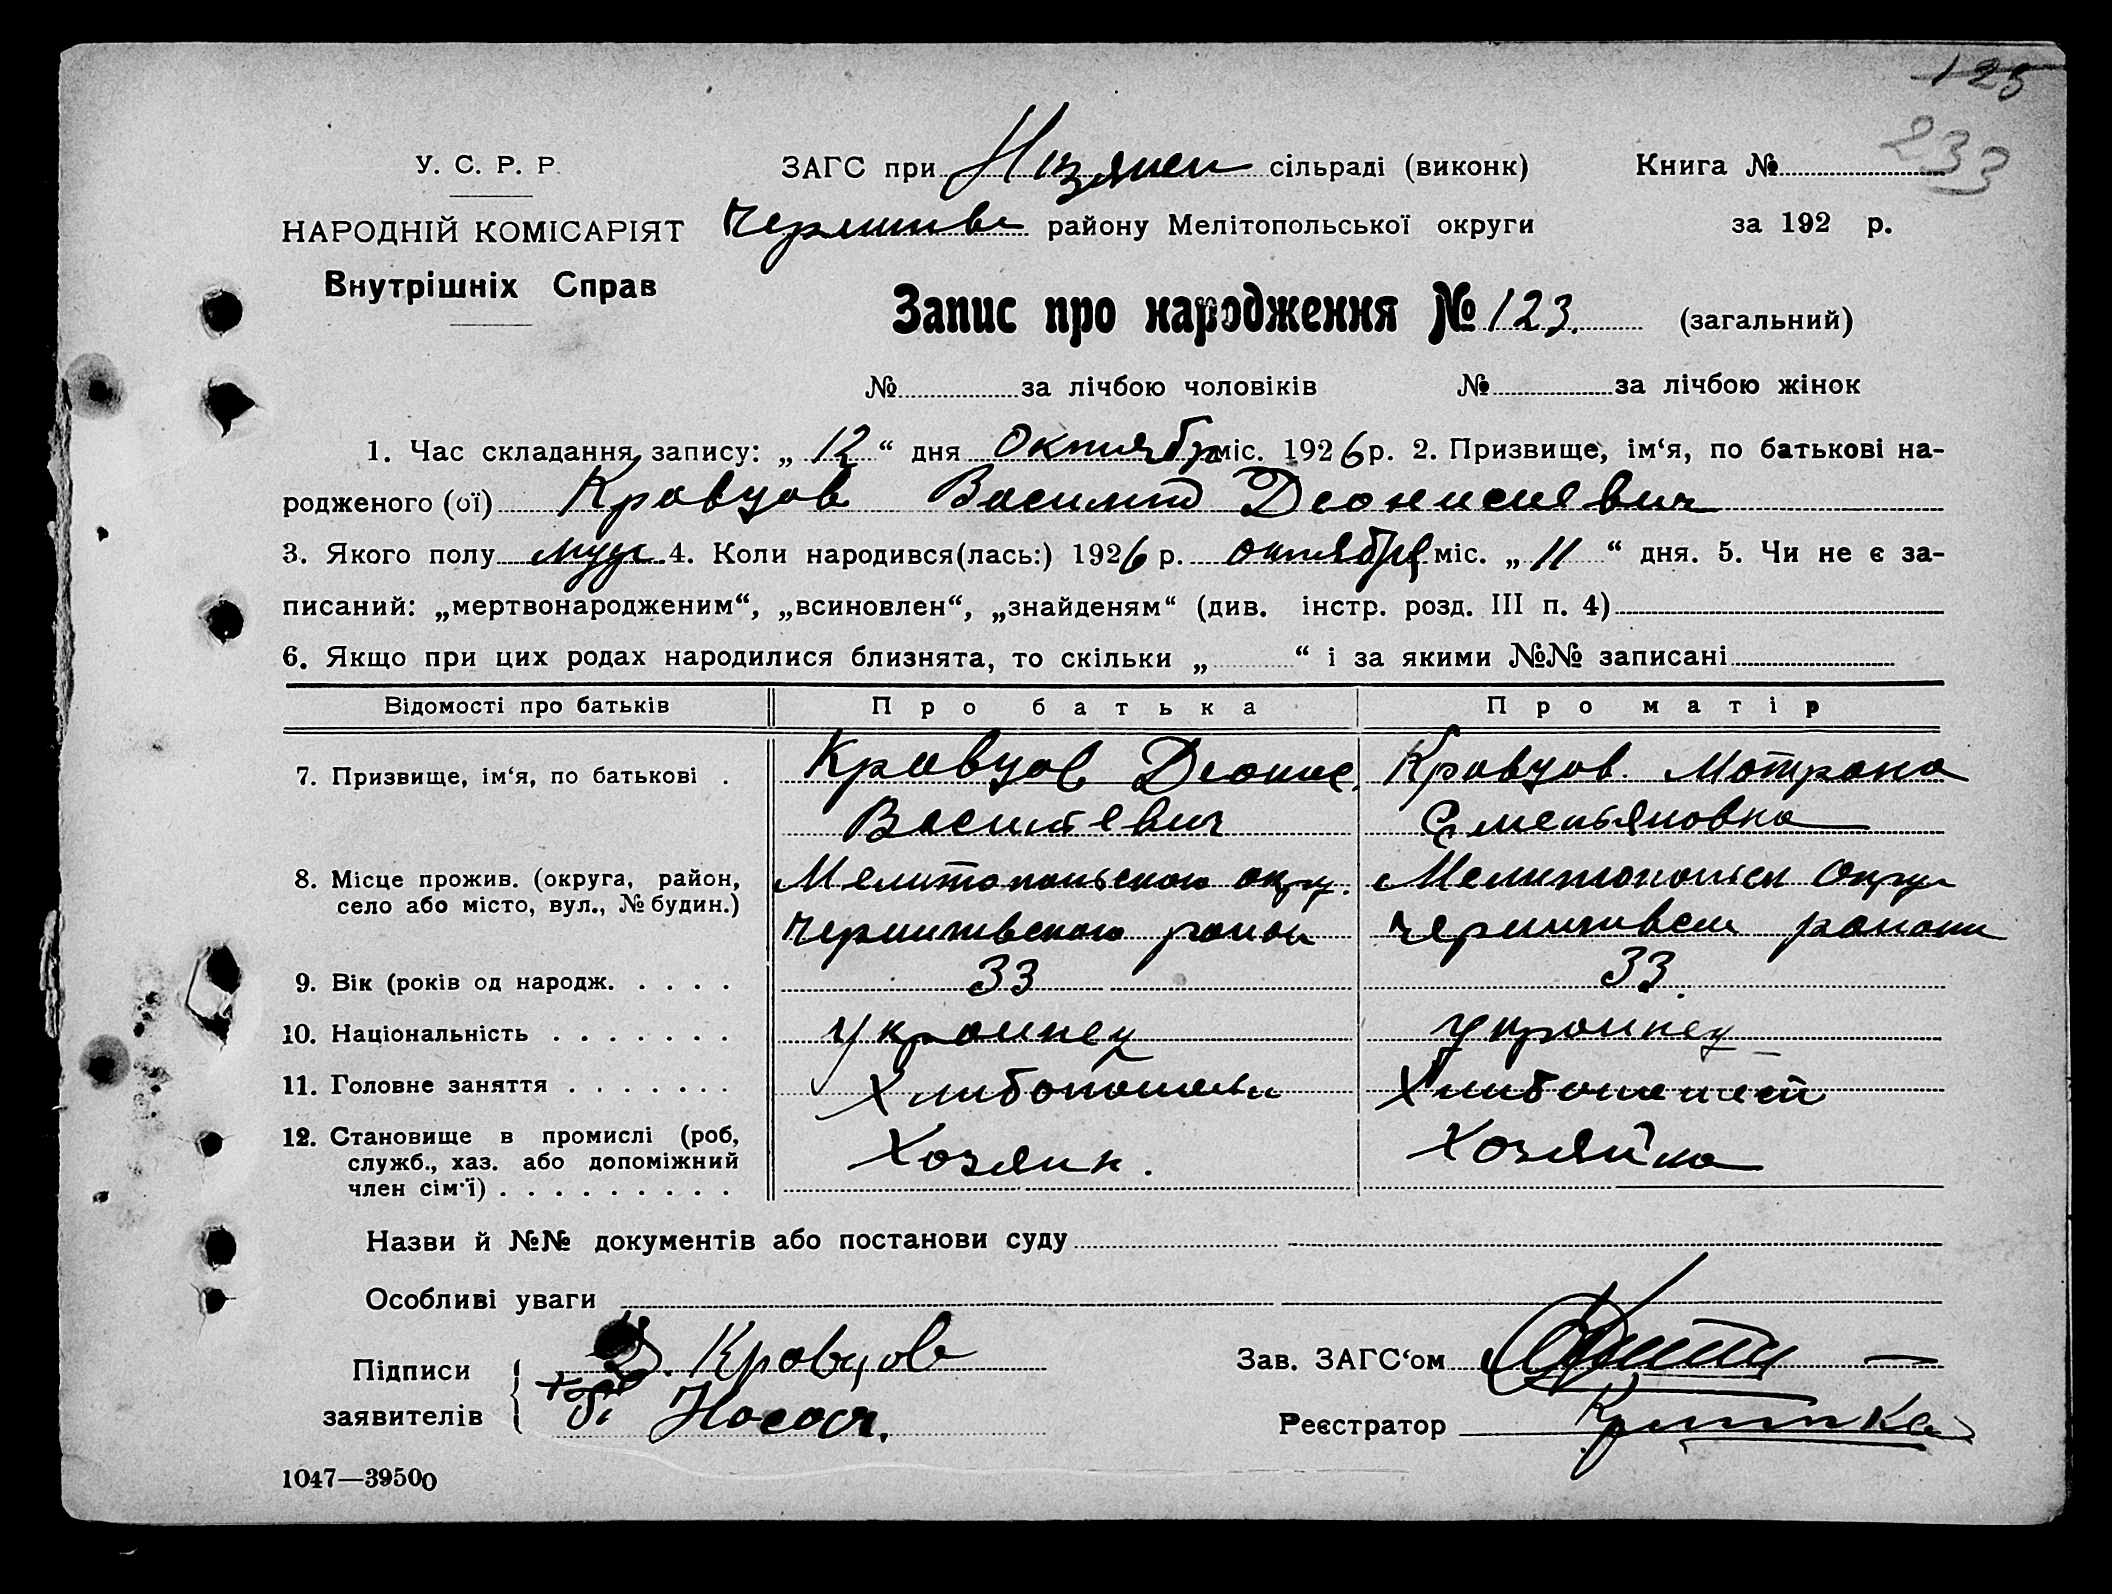 125
233
У. С. Р. Р.
ЗАГС при Низянен сільраді (виконк)
Книга №
НАРОДНІЙ КОМІСАРІЯТ
району Мелітопольської округи
за 192 р.
Внутрішніх Справ
Запис про народження № 123. (загальний)
№ за лічбою чоловіків № за лічбою жінок
1. Час складання запису: „ 12 “ дня Октября міс. 1926 р. 2. Призвище, ім‘я, по батькові на-
родженого (ої) Кравцов Василий Деонисиевич
3. Якого полу муж 4. Коли народився(лась:) 1926 р. октября міс. „ 11 “ дня. 5. Чи не є за-
писаний: „мертвонародженим“, „всиновлен“, „знайденям“ (див. інстр. розд. III п. 4)
6. Якщо при цих родах народилися близнята, то скільки „ “ і за якими №№ записані
Відомості про батьків
Про батька
Про матір
7. Призвище, ім‘я, по батькові .
Кравцов Деонис.
Васильевич
Кравцов Мотрона
Емельяновна
8. Місце прожив. (округа, район,
село або місто, вул., № будин.)
Мелитопольского окр.
район
9. Вік (років од народж. . . . .
33
33
10. Національність . . . . . . .
Украинец
Украинец
11. Головне заняття . . . . . . .
12. Становище в промислі (роб,
служб., хаз. або допоміжний
член сім‘ї) . . . . . . . . .
Хозяин.
Хозяйка
Назви й №№ документів або постанови суду
Особливі уваги
Підписи
заявителів
Д. Кравцов
Носач.
Зав. ЗАГС‘ом
Реєстратор
1047—39500